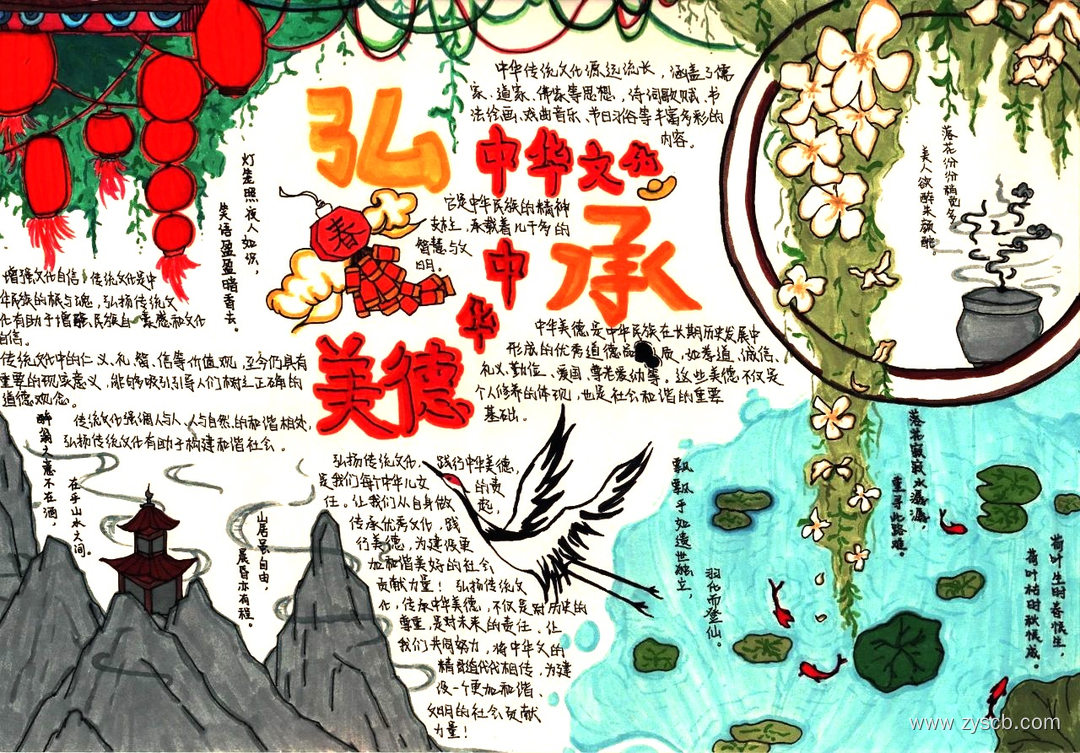 弘
中华文化
承
中华
美德
中华传统文化源远流长，涵盖了儒
家、道家、佛家等思想，诗词歌赋、书
法绘画、戏曲音乐、节日习俗等丰富多彩的
内容。
它是中华民族的精神
支柱，承载着几千多的
智慧与文
明。
春
灯生照夜人如织，
笑语盈盈暗香去。
增强文化自信：传统文化是中
华民族的根与魂，弘扬传统文
化有助于增强民族自豪感和文化
自信。
传统文化中的仁、义、礼、智、信等价值观，至今仍具有
重要的现实意义，能够吸引引导人们树立正确的
道德观念。
传统文化强调人与人、人与自然的和谐相处，
弘扬传统文化有助于构建和谐社会。
中华美德是中华民族在长期历史发展中
形成的优秀道德品质，如孝道、诚信、
礼义、勤俭、爱国、尊老爱幼等。这些美德不仅是
个人修养的体现，也是社会和谐的重要
基础。
弘扬传统文化，践行中华美德，
是我们每个中华儿女的责
任。让我们从自身做起，
传承优秀文化，践
行美德，为建设更
加和谐美好的社会
贡献力量！弘扬传统文
化，传承中华美德，不仅是对历史的
尊重，是对未来的责任。让
我们共同努力，将中华文的
精彩代代相传，为建
设一个更加和谐、
文明的社会贡献
力量！
醉翁之意不在酒，
在乎山水之间。
山居虽自由，
晨昏亦有程。
落花份份稍觉多，
美人欲醉朱敲酡。
飘飘乎如遗世独立，
羽化而登仙。
落花寂寂水潺潺，
重寻此路难。
荷叶生时春恨生，
荷叶枯时秋恨成。
www.zyscb.com